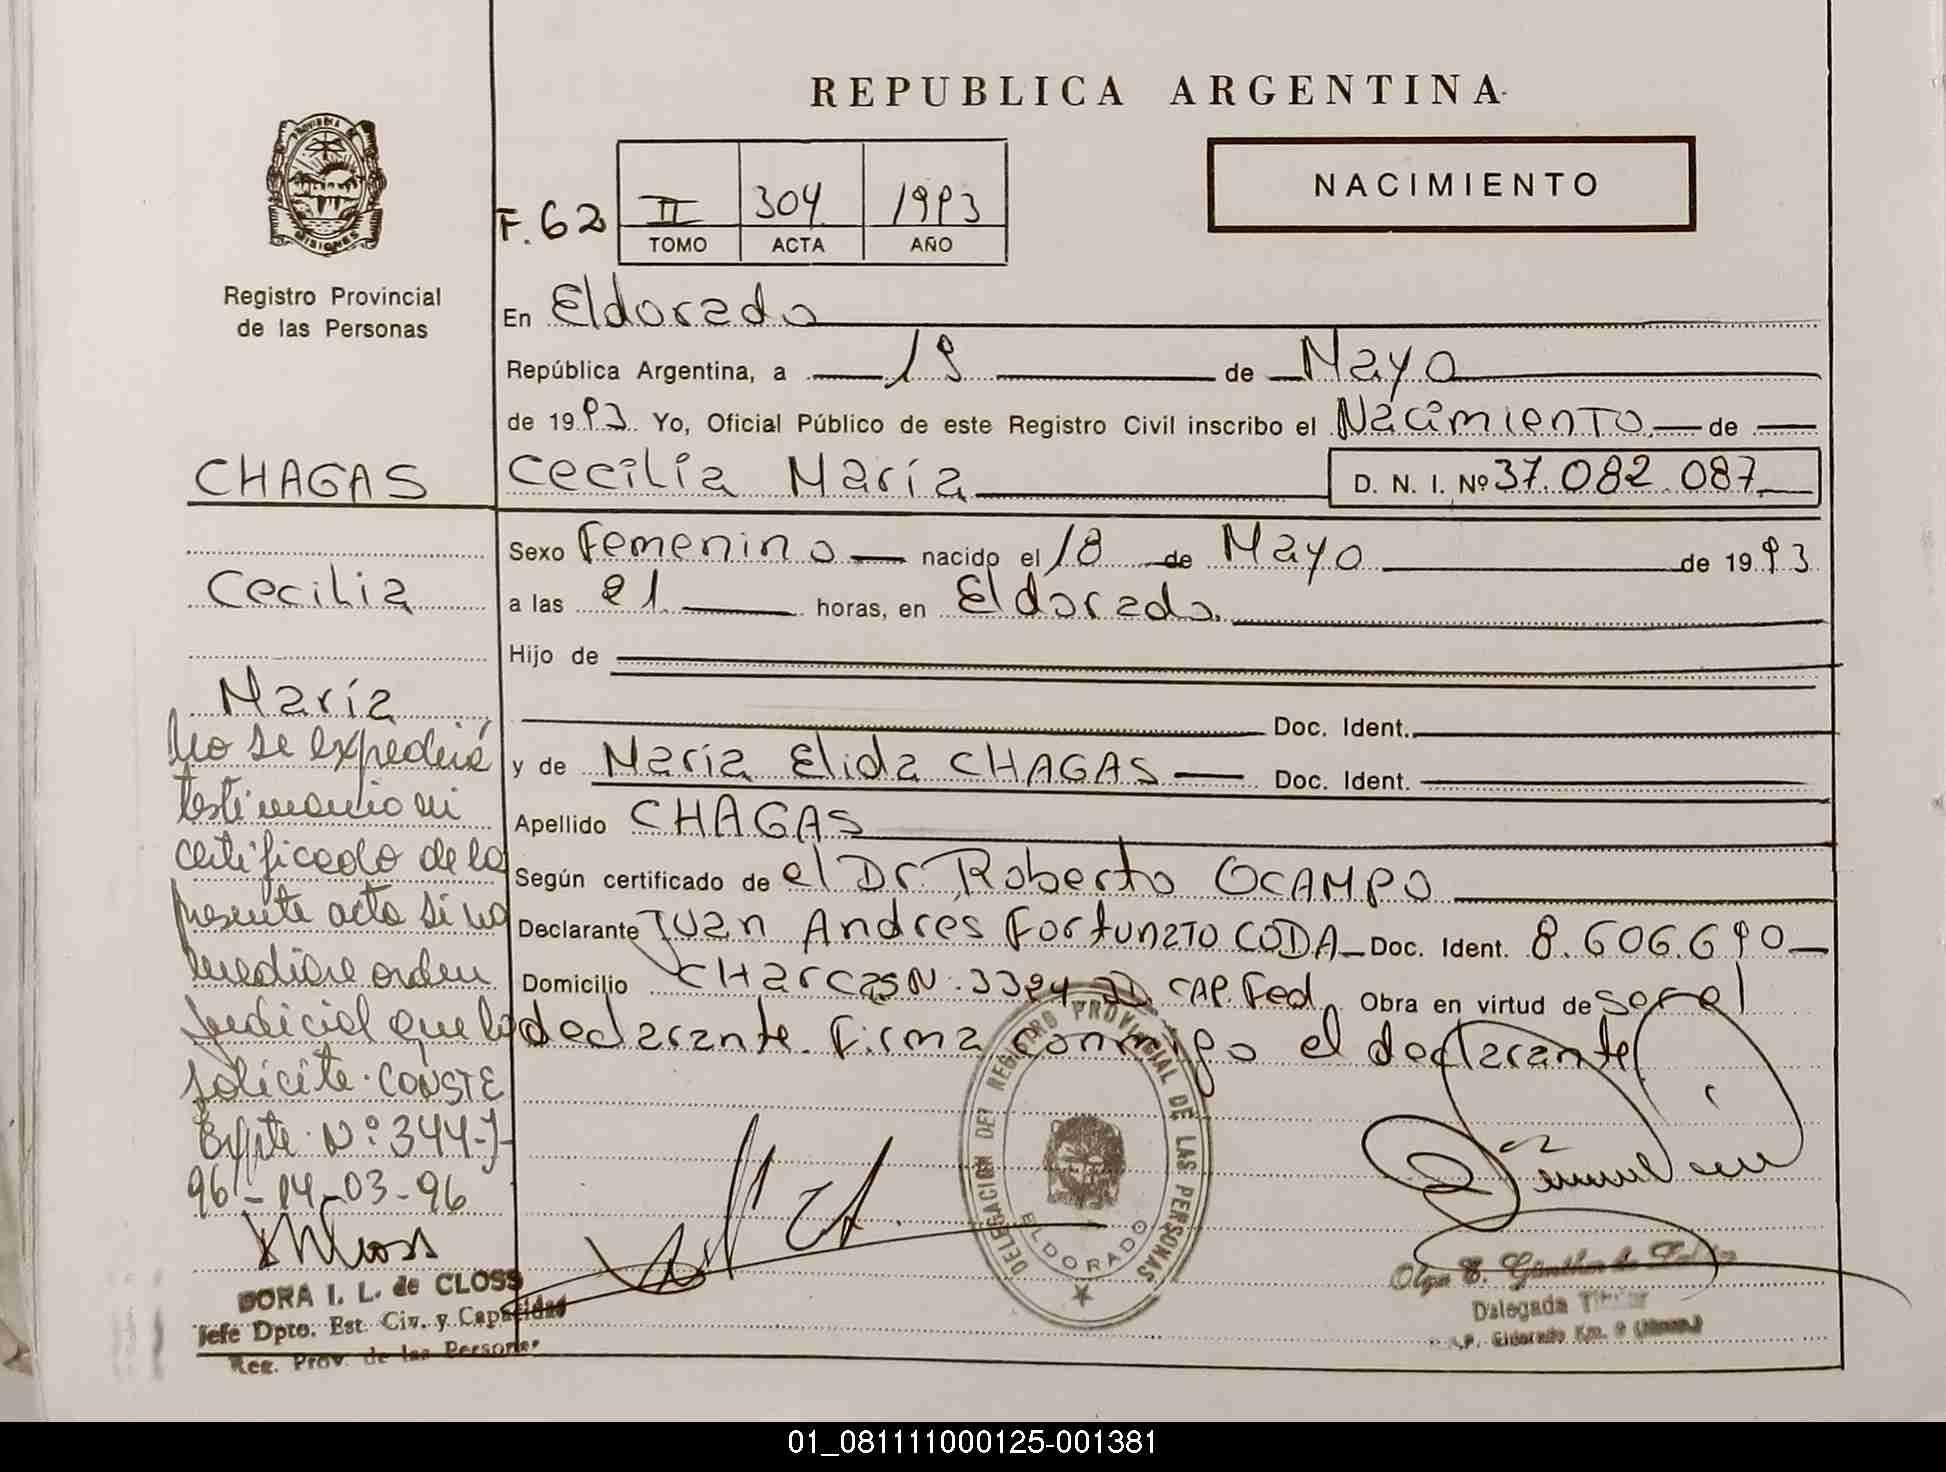 REPUBLICA ARGENTINA
PROVINCIA DE MISIONES
Registro Provincial
de las Personas
NACIMIENTO
F.62
II 304 1993
TOMO ACTA AÑO
En Eldorado
República Argentina, a 19 de Mayo
de 1993 Yo, Oficial Público de este Registro Civil inscribo el Nacimiento de
CHAGAS
Cecilia María D. N. I. Nº 37.082.087
Sexo Femenino nacido el 18 de Mayo de 1993
Cecilia
a las 21 horas, en Eldorado
Hijo de
María
Doc. Ident.
y de María Elida CHAGAS Doc. Ident.
Apellido CHAGAS
Según certificado de el Dr. Roberto OCAMPO
Declarante Juan Andrés Fortunato CODA Doc. Ident. 8.606.690
Domicilio CHarcas N. 3394 CAP. Fed. Obra en virtud de ser el
declarante. Firma conmigo el declarante
No se expedirá
testimonio ni
certificado de la
presente acta si no
mediare orden
judicial que lo
solicite. CONSTE
Expte. Nº 344-J-
96 - 14-03-96
DORA I. L. de CLOSS
Jefe Dpto. Est. Civ. y Capacidad
Reg. Prov. de las Personas
DELEGACION DEL REGISTRO PROVINCIAL DE LAS PERSONAS
ELDORADO
Olga E.
Delegada Titular
Eldorado Km. 9
01_081111000125-001381